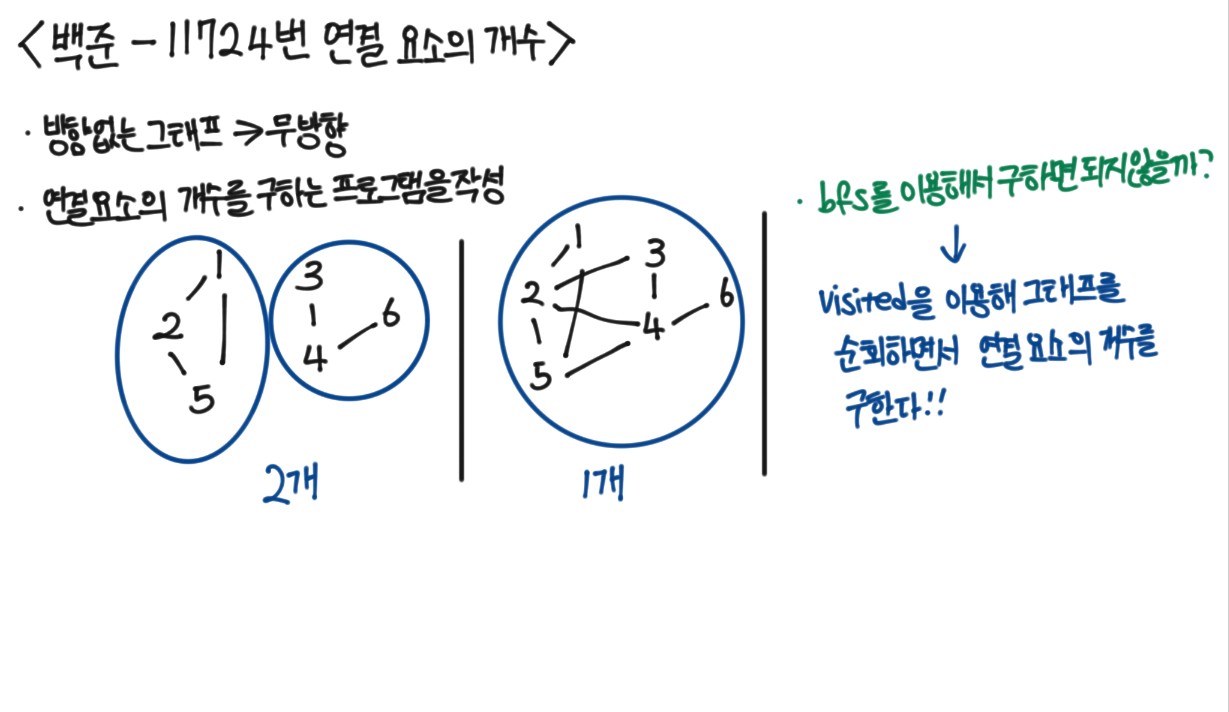 <백준 - 11724번 연결 요소의 개수>
· 방향없는 그래프 → 무방향
· 연결요소의 개수를 구하는 프로그램을 작성
1
2
5
3
4
6
2개
1
2
5
3
4
6
1개
· bfs를 이용해서 구하면 되지않을까?
↓
visited을 이용해 그래프를
순회하면서 연결 요소의 개수를
구한다!!